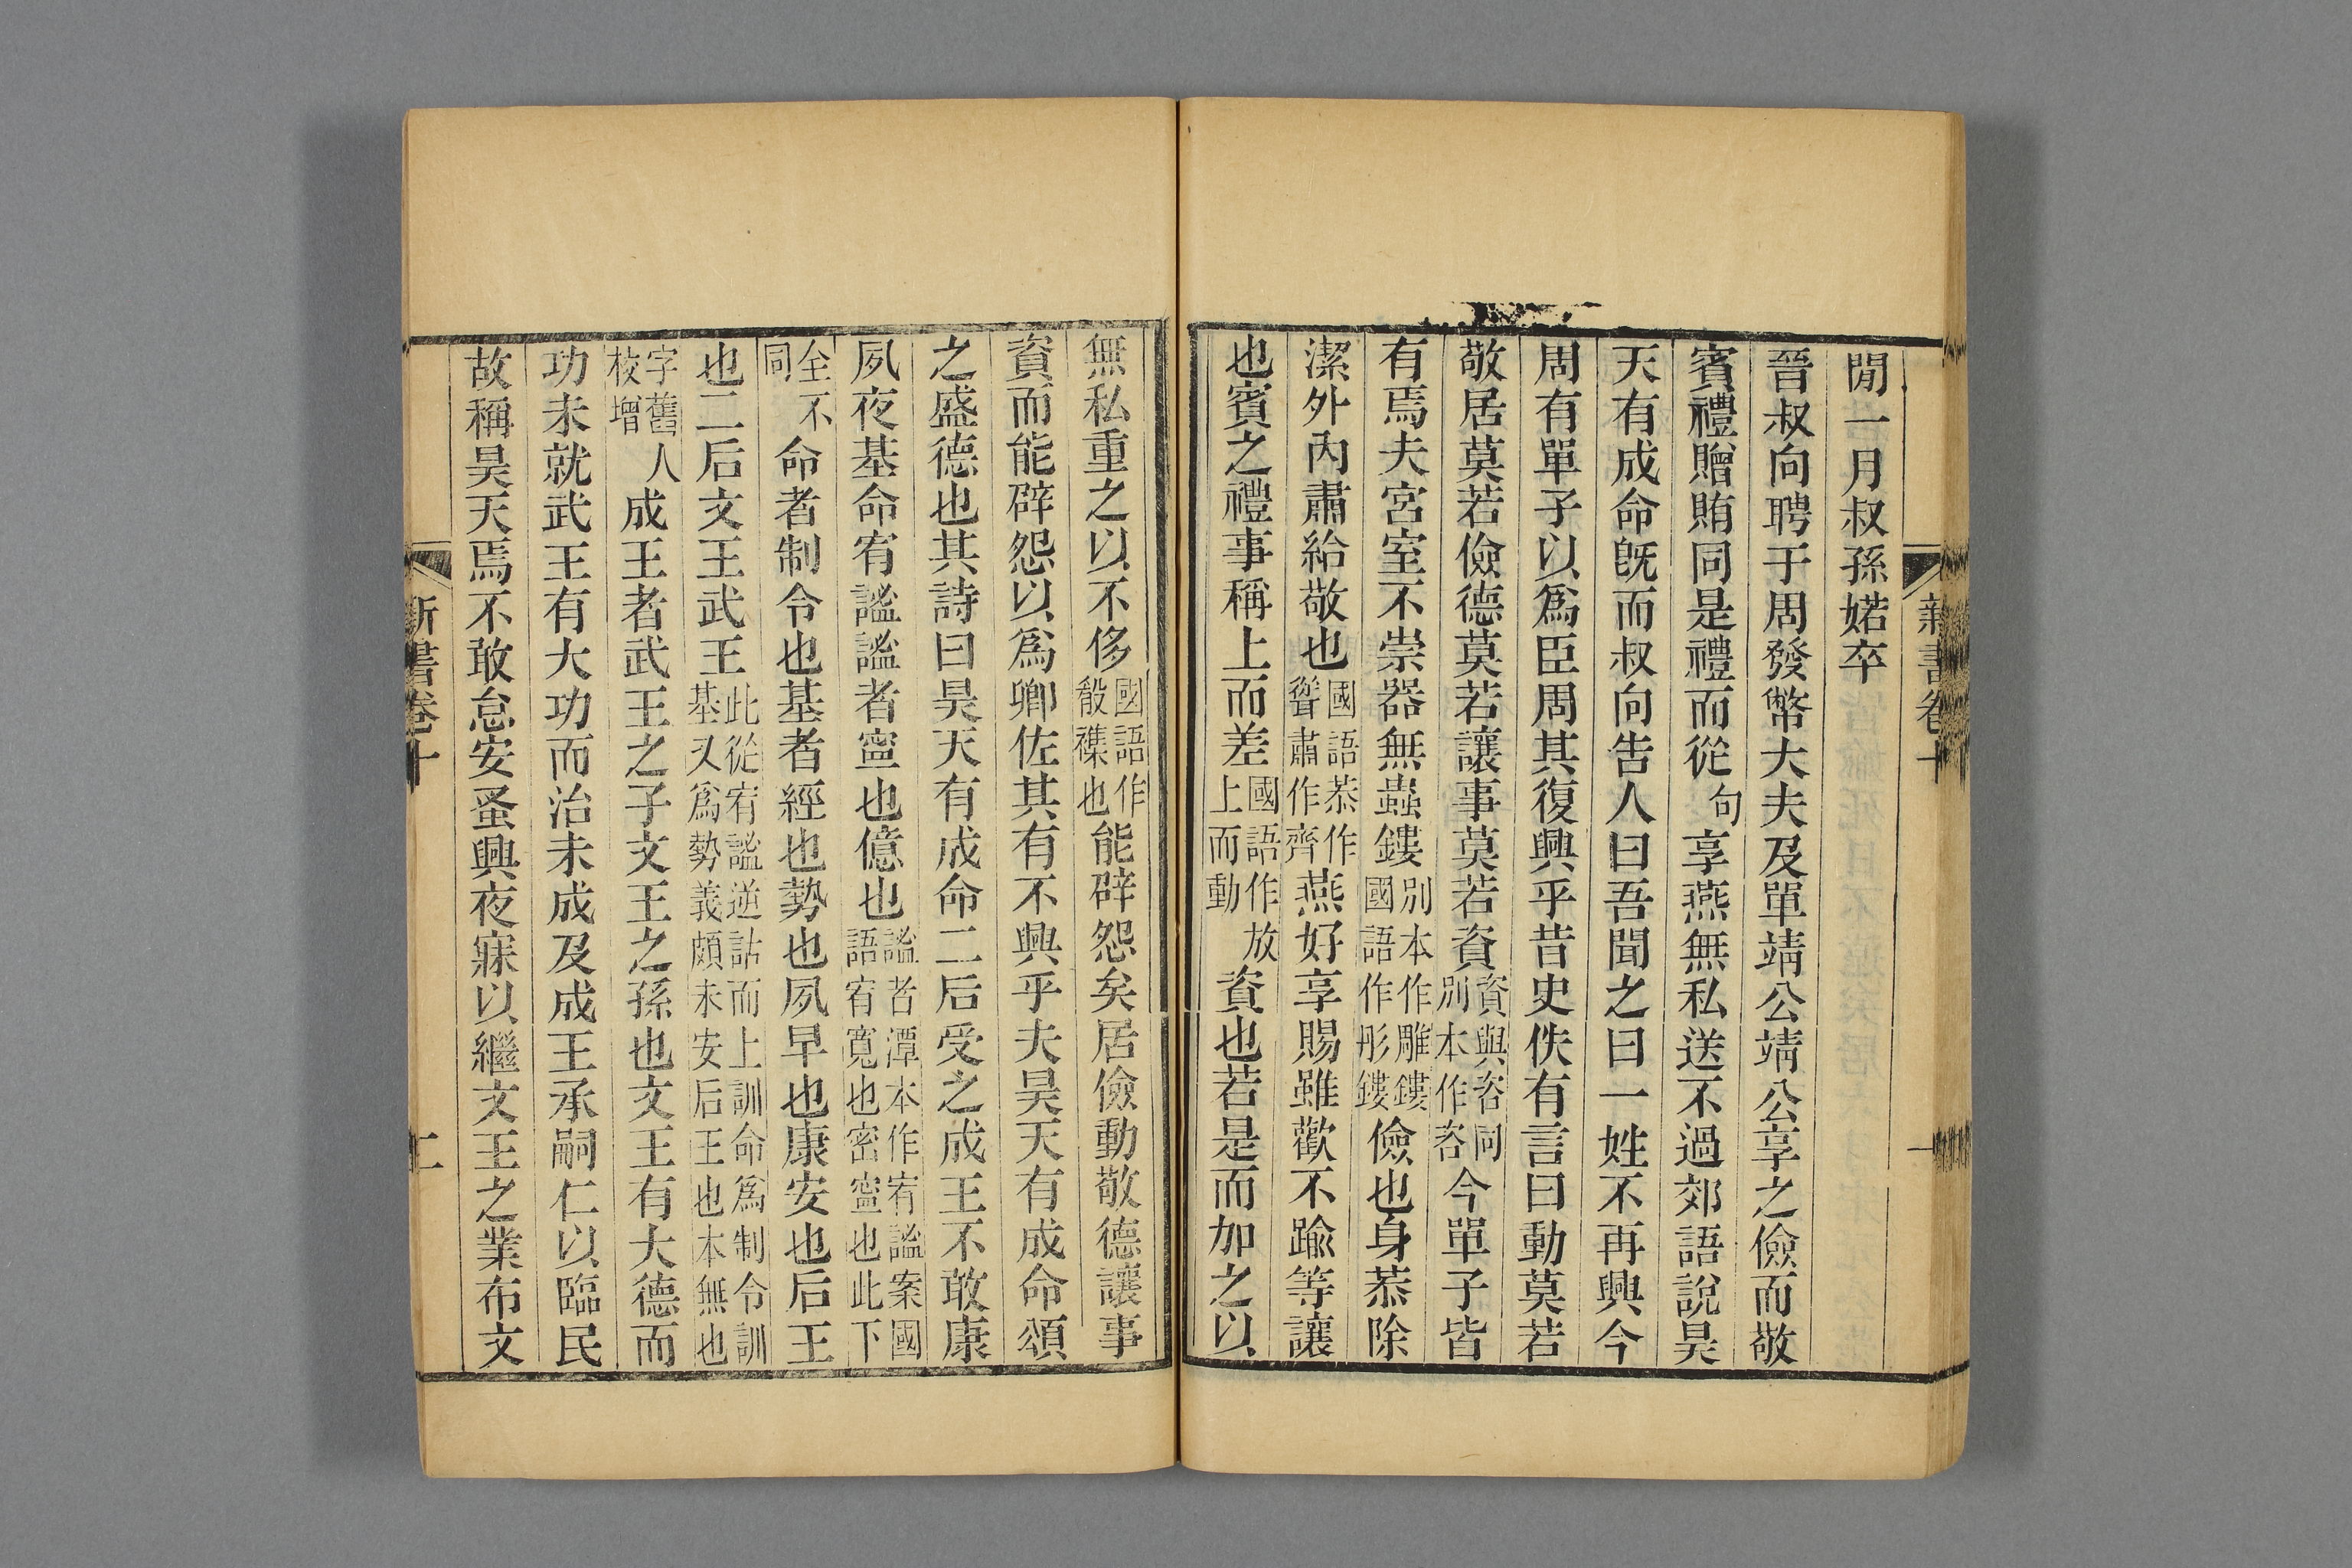 新書卷十
一
閒一月叔孫婼卒
晉叔向聘于周發幣大夫及單靖公靖公享之儉而敬
賓禮贈賄同是禮而從句享燕無私送不過郊語說昊
天有成命旣而叔向告人曰吾聞之曰一姓不再興今
周有單子以爲臣周其復興乎昔史佚有言曰動莫若
敬居莫若儉德莫若讓事莫若資資與咨同別本作咨今單子皆
有焉夫宮室不崇器無蟲鏤別本作雕鏤國語作彤鏤儉也身恭除
潔外內肅給敬也國語恭作聳肅作齊燕好享賜雖歡不踰等讓
也賓之禮事稱上而差國語作放上而動資也若是而加之以
無私重之以不侈國語作殽襍也能辟怨矣居儉動敬德讓事
資而能辟怨以爲卿佐其有不興乎夫昊天有成命頌
之盛德也其詩曰昊天有成命二后受之成王不敢康
夙夜基命宥謐謐者寧也億也謐者潭本作宥謐案國語宥寬也密寧也此下
全不同命者制令也基者經也勢也夙早也康安也后王
也二后文王武王此從宥謐逆詁而上訓命爲制令訓基又爲勢義頗未安后王也本無也
字舊人校增成王者武王之子文王之孫也文王有大德而
功未就武王有大功而治未成及成王承嗣仁以臨民
故稱昊天焉不敢怠安蚤興夜寐以繼文王之業布文
新書卷十
二